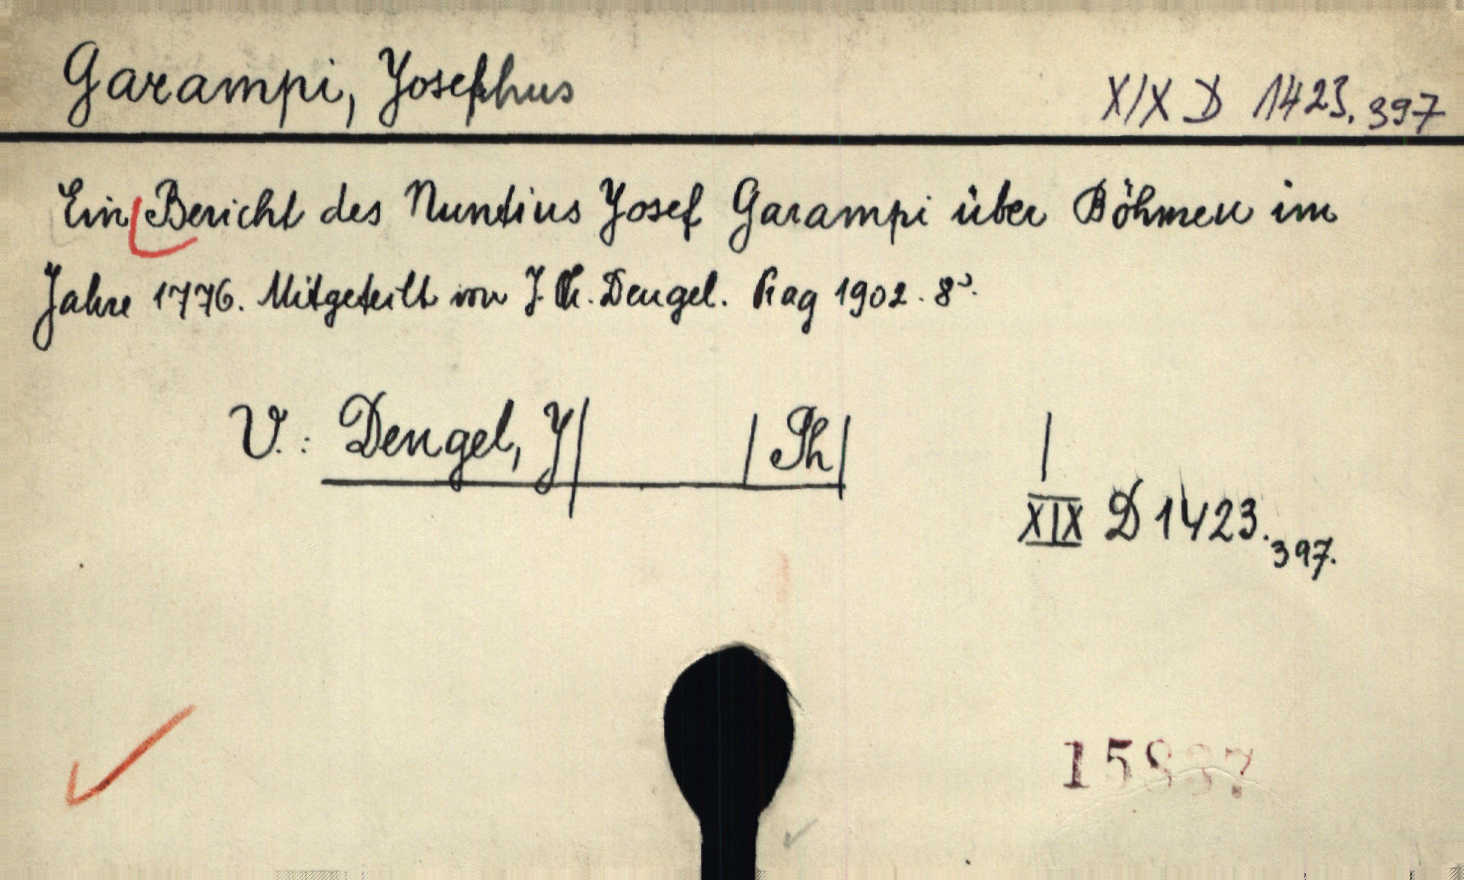 Garampi, Josephus
XIX D 1423.397
Ein Bericht des Nuntius Josef Garampi über Böhmen im
Jahre 1776. Mitgeteilt von J. Ph. Dengel. Prag 1902. 8°.
V.: Dengel, J| |Ph| |
XIX D 1423.397.